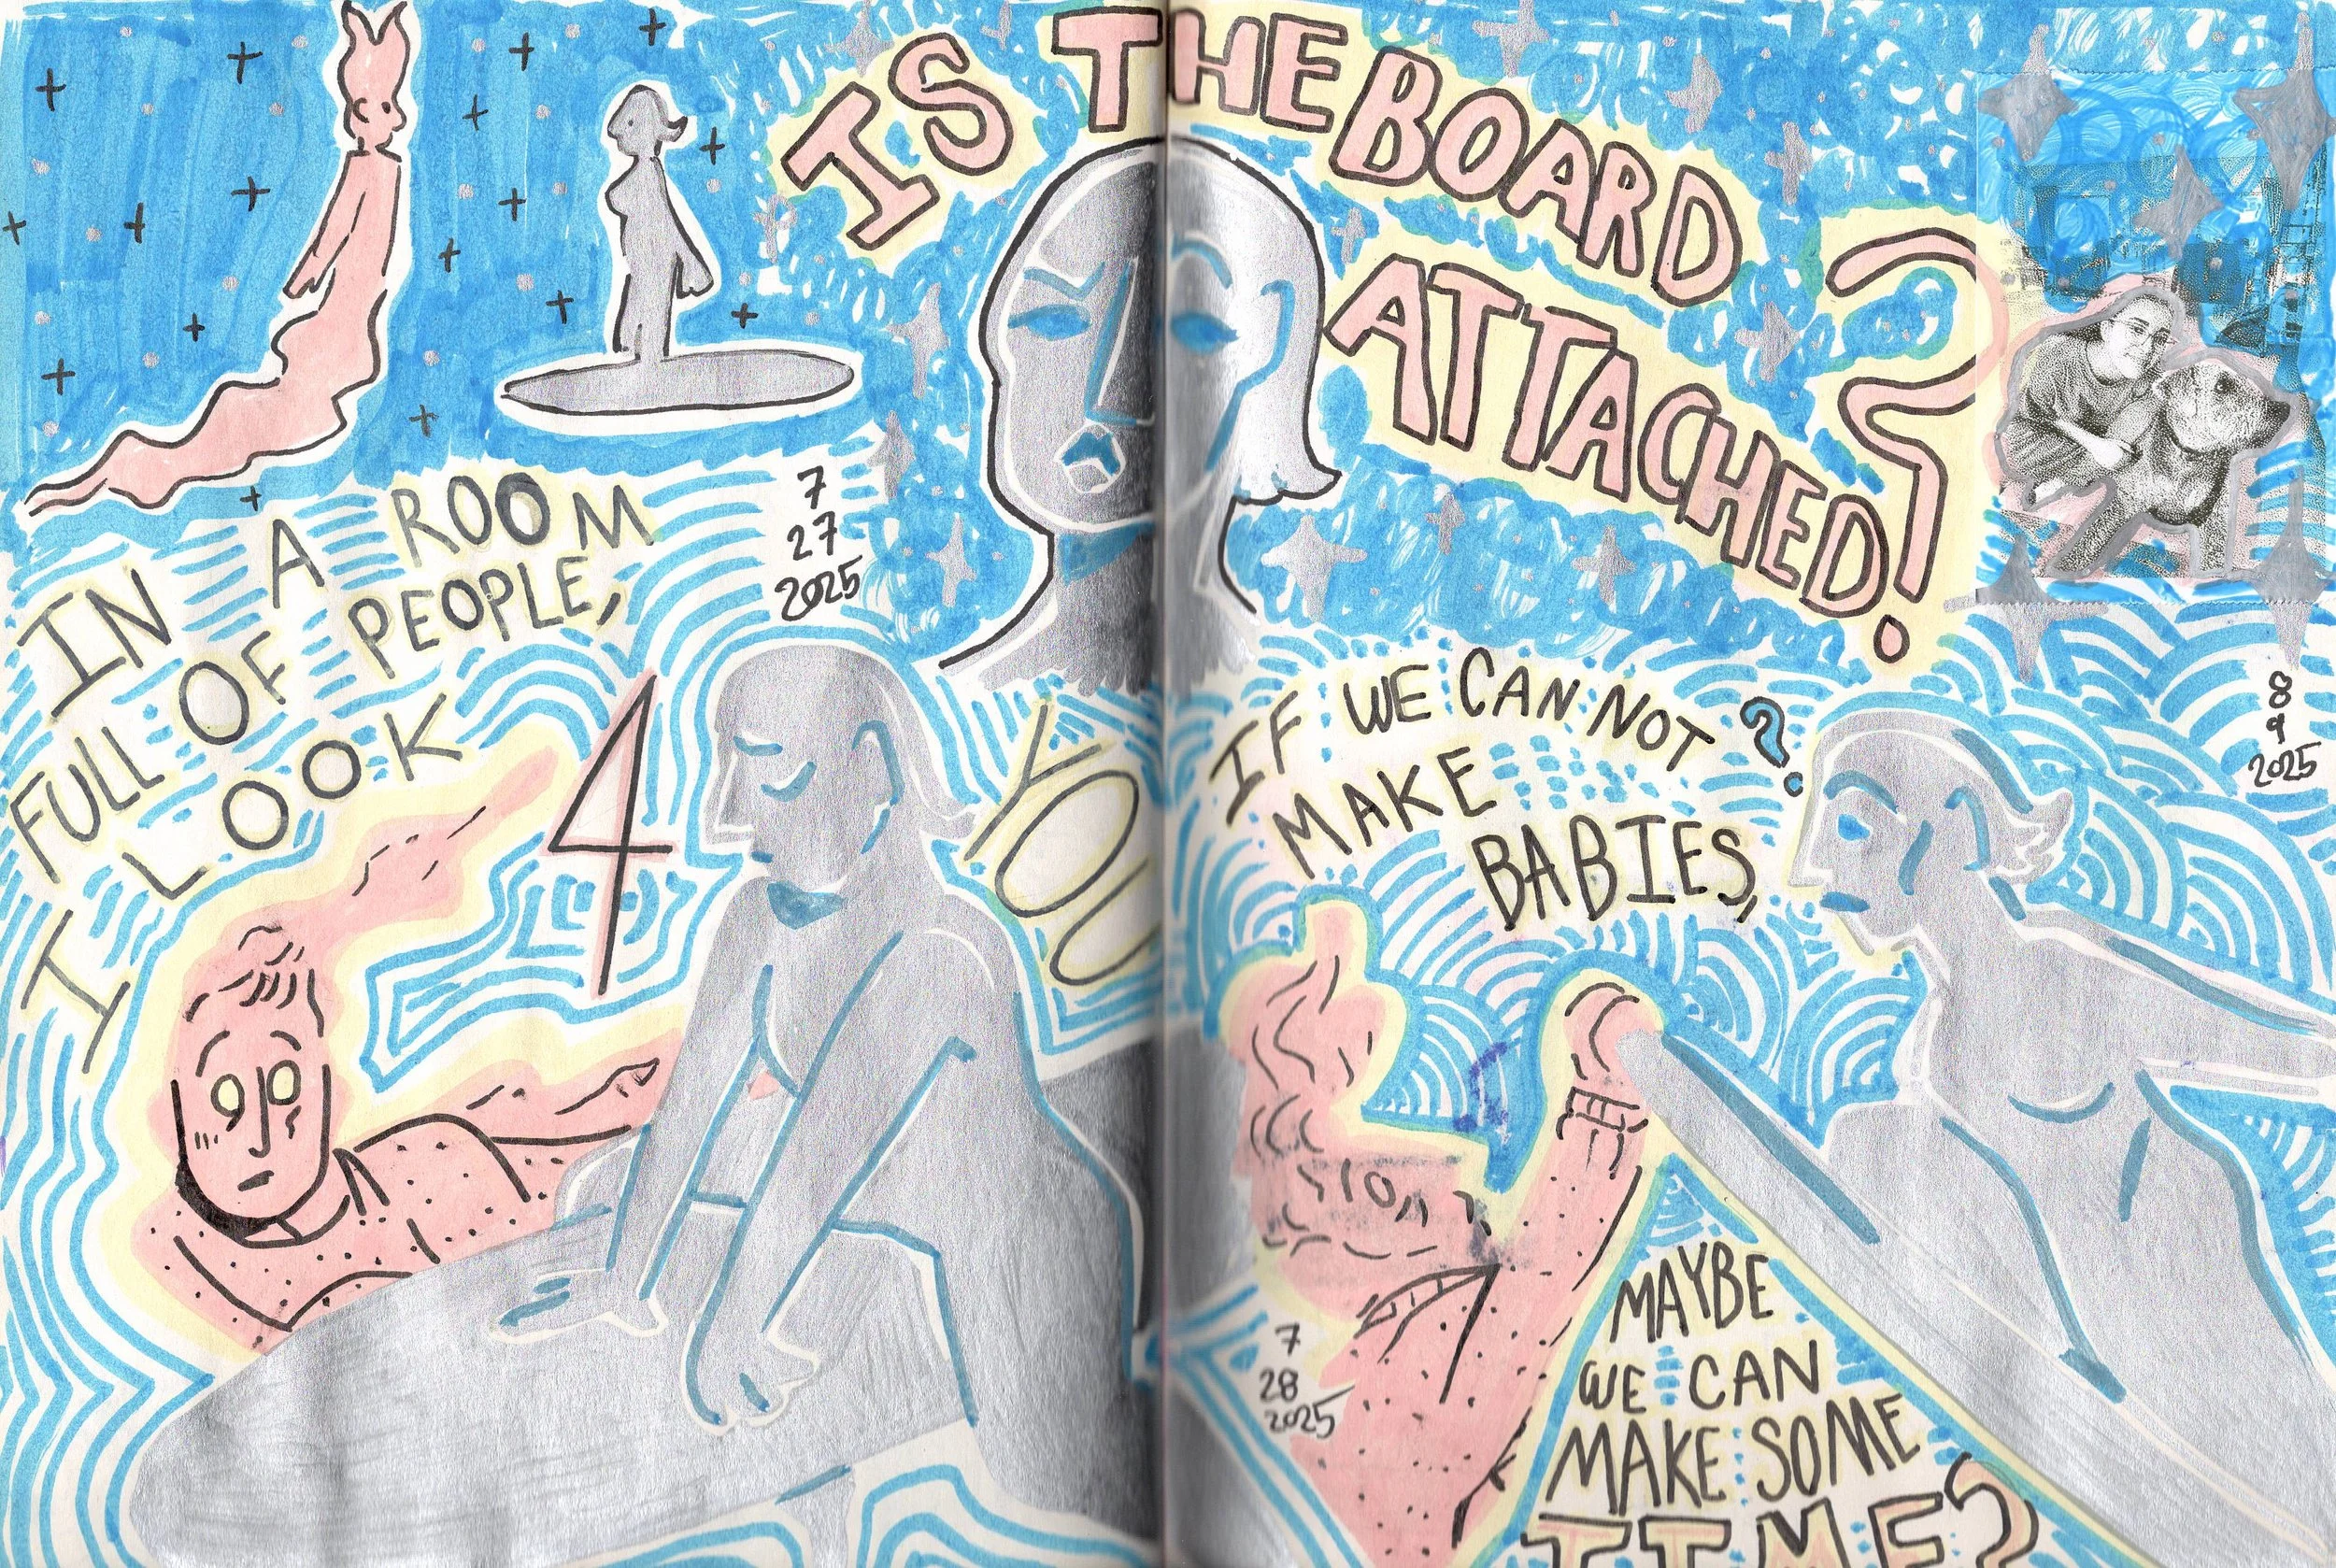 IS THE BOARD
ATTACHED?
IN A ROOM
FULL OF PEOPLE,
I LOOK
4 YOU
7
27
2025
IF WE CAN NOT ?
MAKE
BABIES,
8
9
2025
7
28
2025
MAYBE
WE CAN
MAKE SOME
TIME?